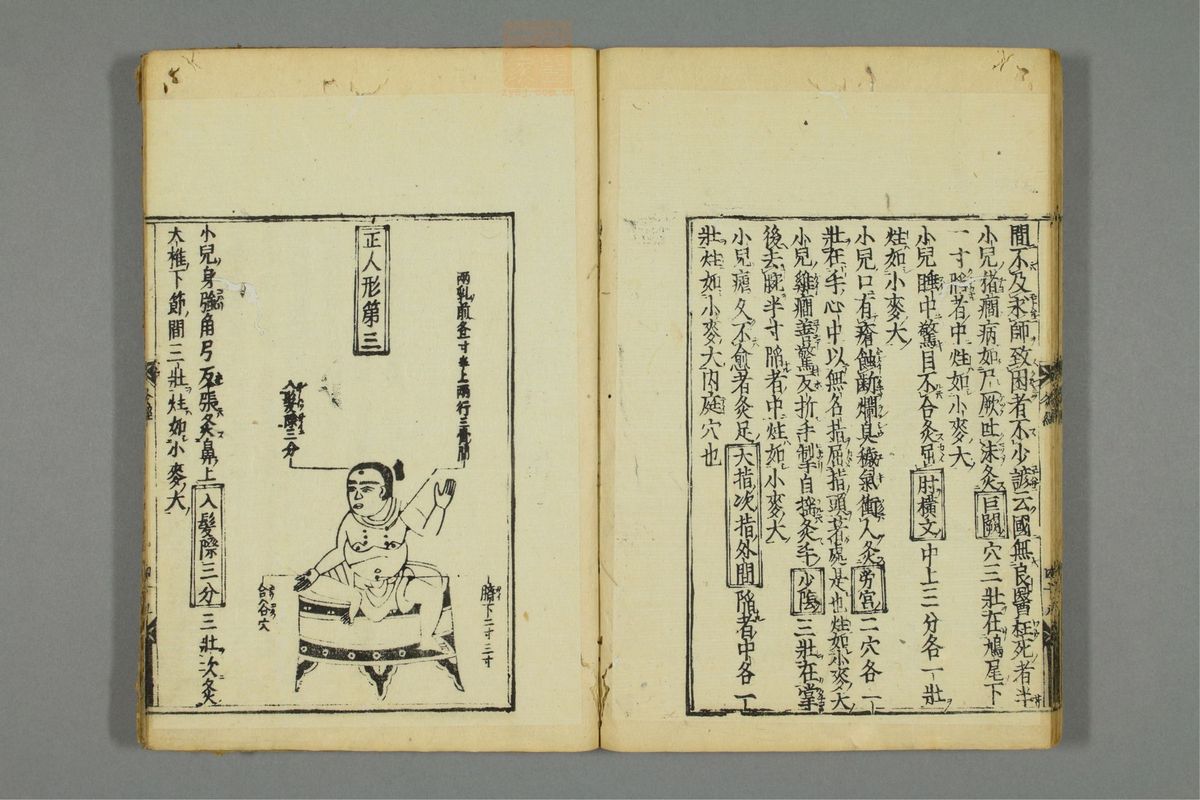 間不及求師致困者不少諺云國無良醫枉死者半
小兒猪癇病如尸厥吐沫灸巨闕穴三壯在鳩尾下
一寸陷者中炷如小麥大
小兒睡中驚目不合灸屈肘橫文中上三分各一壯
炷如小麥大
小兒口有瘡蝕齗爛臭穢氣衝人灸勞宮二穴各一
壯在手心中以無名指屈指頭著處是也炷如小麥大
小兒雞癇善驚反折手掣自搐灸手少陰三壯在掌
後去腕半寸陷者中炷如小麥大
小兒瘧久不愈者灸足大指次指外間陷者中各一
壯炷如小麥大內庭穴也
兩乳前各一寸半上兩行三骨間
正人形第三
入髮際三分
臍下二寸三寸
合谷穴
小兒身強角弓反張灸鼻上入髮際三分三壯次灸
大椎下節間三壯炷如小麥大